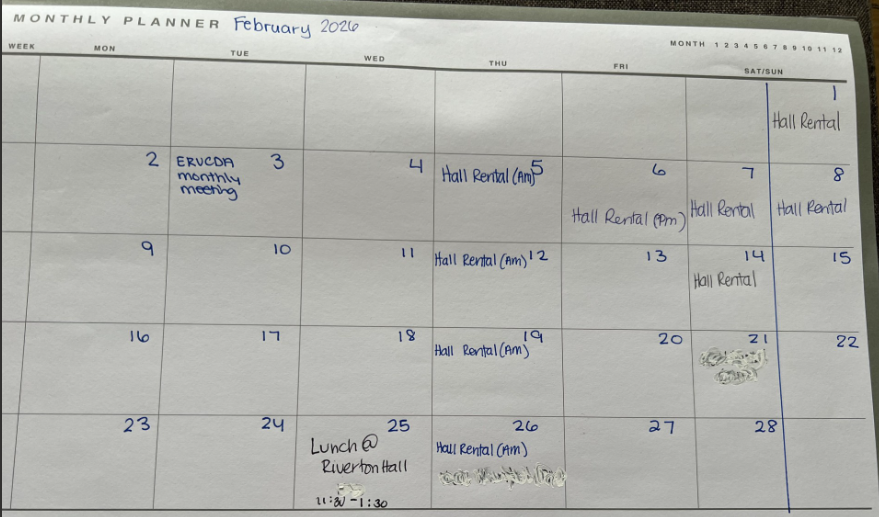 MONTHLY PLANNER February 2026
MONTH 1 2 3 4 5 6 7 8 9 10 11 12
WEEK MON TUE WED THU FRI SAT/SUN
1
Hall Rental
2
ERUCDA 3
monthly
meeting
4
5
Hall Rental (Am)
6
Hall Rental (Pm)
7
Hall Rental
8
Hall Rental
9
10
11
Hall Rental (Am) 12
13
14
Hall Rental
15
16
17
18
19
Hall Rental (Am)
20
21
22
23
24
25
Lunch @
Riverton Hall
11:30 - 1:30
26
Hall Rental (Am)
27
28